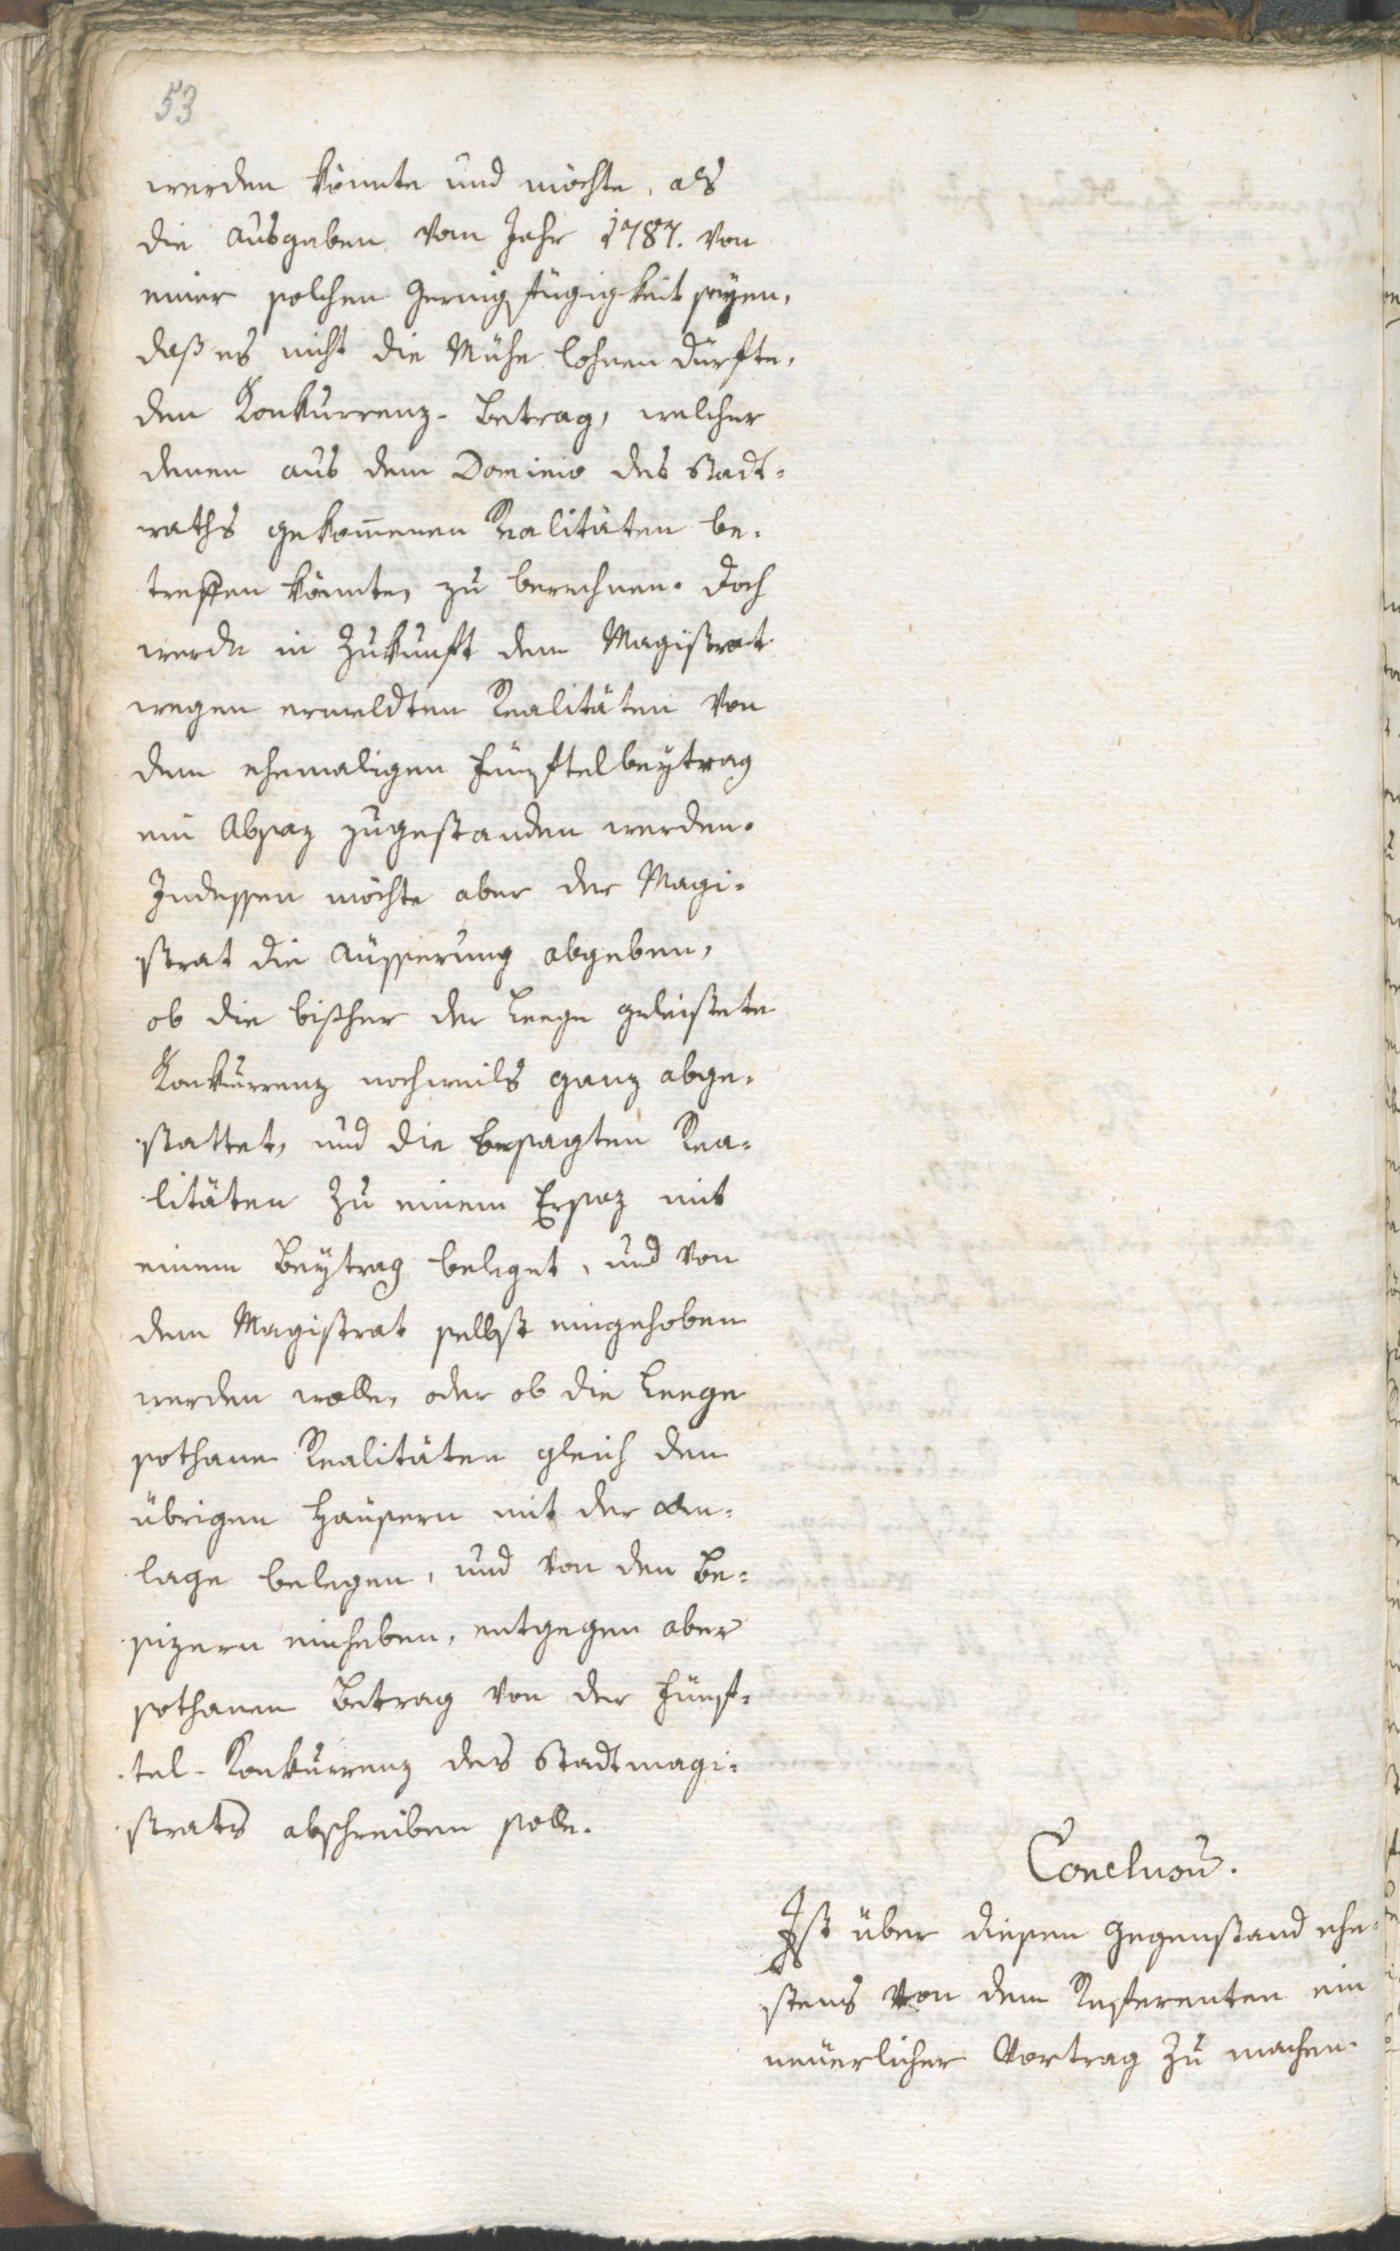 53
werden könnte und möchte, als
die Ausgaben vom Jahr 1787. von
einer solchen Geringfügigkeit seyen,
daß es nicht die Mühe lohnen dürfte,
den Konkurrenz-Betrag, welcher
denen aus dem Dominio des Stadt-
raths gekom̅enen Realitäten be-
treffen könnte, zu berechnen. Doch
werde in Zukunft dem Magistrat
wegen ermeldten Realitäten von
dem ehemaligen Fünftelbeytrag
ein Absaz zugestanden werden.
Indessen möchte aber der Magi-
strat die Äusserung abgeben,
ob die bisher der Leege geleistete
Konkurrenz nochmals ganz abge-
stattet, und die besagten Rea-
litäten zu einem Ersaz mit
einem Beytrag beleget, und von
dem Magistrat selbst eingehoben
werden wolle, oder ob die Leege
sothane Realitäten gleich den
übrigen Häusern mit der An-
lage belegen, und von den Be-
sizern einheben, entgegen aber
sothanen Betrag von der Fünf-
tel-Konkurrenz des Stadtmagi-
strats abschreiben solle.
Conclusū.
Ist über diesen Gegenstand ehe-
stens von dem Referenten ein
neuerlicher Vortrag zu machen.